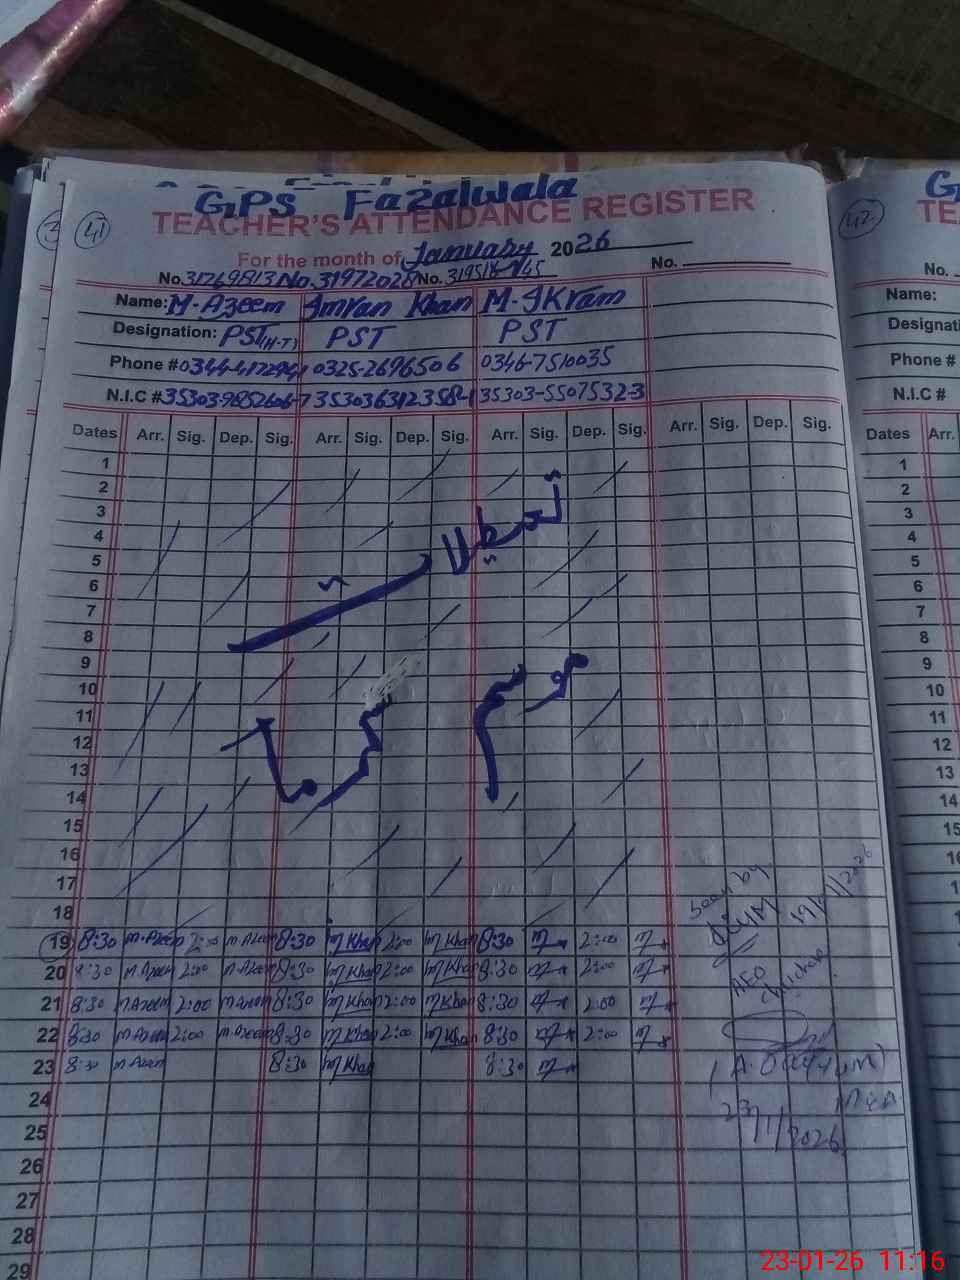 GPS Fazalwala
TEACHER'S ATTENDANCE REGISTER
41
For the month of January 2026
No. 31269813 No. 31972028 No. No.
Name: M-Azeem Imran Khan M-IKram
Designation: PST(H-T) PST PST
Phone # 0325-2696506 0346-7510035
N.I.C # 35303
Dates Arr. Sig. Dep. Sig. Arr. Sig. Dep. Sig. Arr. Sig. Dep. Sig. Arr. Sig. Dep. Sig.
1
2
3
4
5
6
7
8
9
10
11
12
13
14
15
16
17
18
تعطیلات
موسم سرما
19 8:30 M-Azeem 2:00 M-Azeem 8:30 M Khan 2:00 M Khan 8:30 2:00
20 8:30 M-Azeem 2:00 M-Azeem 8:30 M Khan 2:00 M Khan 8:30 2:00
21 8:30 M-Azeem 2:00 M-Azeem 8:30 M Khan 2:00 M Khan 8:30 2:00
22 8:30 M-Azeem 2:00 M-Azeem 8:30 M Khan 2:00 M Khan 8:30 2:00
23 8:30 M-Azeem 8:30 M Khan 8:30
24
25
26
27
28
29
Seen by
AEO
MEA
23/1/2026
42
No.
Name:
Designati
Phone #
N.I.C #
Dates Arr.
1
2
3
4
5
6
7
8
9
10
11
12
13
14
15
23-01-26 11:16